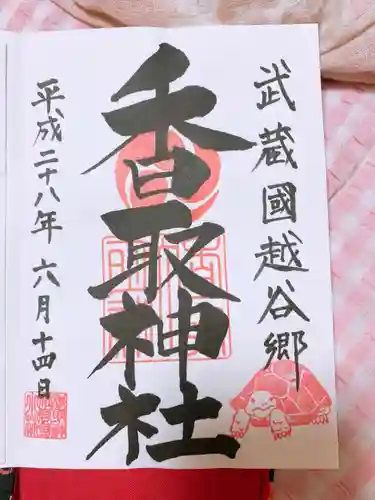 武蔵國越谷郷
香取神社
平成二十八年六月十四日